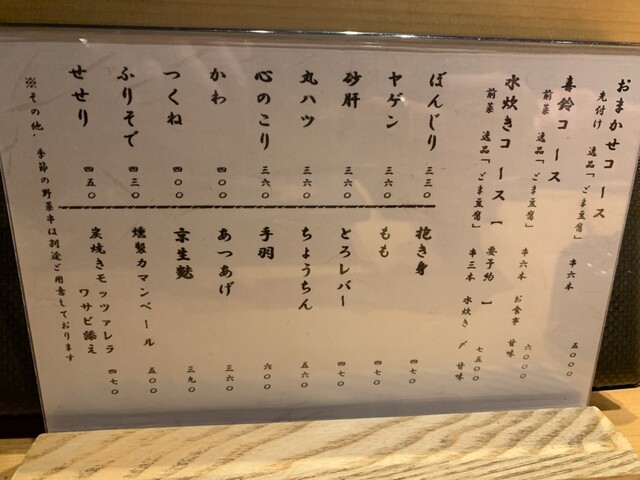 おまかせコース
先付け 逸品「ごま豆腐」 串六本 五〇〇〇
喜鈴コース
前菜 逸品「ごま豆腐」 串六本 お食事 甘味 六〇〇〇
水炊きコース【要予約】 七五〇〇
前菜 逸品「ごま豆腐」 串三本 水炊き 〆 甘味
ぼんじり 三三〇
ヤゲン 三六〇
砂肝 三六〇
丸ハツ 三六〇
心のこり 三六〇
かわ 四〇〇
つくね 四〇〇
ふりそで 四三〇
せせり 四五〇
抱き身 四七〇
もも 四七〇
とろレバー 四七〇
ちょうちん 五六〇
手羽 六〇〇
あつあげ 三六〇
京生麩 三九〇
燻製カマンベール 五〇〇
炭焼きモッツァレラ
ワサビ添え 四七〇
※その他、季節の野菜串は別途ご用意しております